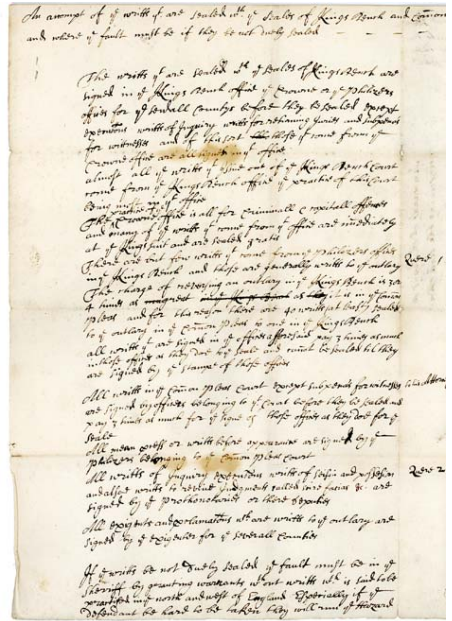 An accompt of yᵉ writts yᵗ are sealed wᵗʰ yᵉ seales of Kings Bench and Com̄on
and where yᵉ fault must be if they be not duely sealed
The writts yᵗ are sealed wᵗʰ yᵉ seales of Kings Bench are
signed in yᵉ Kings Bench office yᵉ Crowne or yᵉ Philizers
offices for yᵉ severall Countys before they be sealed except
executions writts of Inquiry writts for retianing Juries and subpenas
for wittnesses and of this sort those yᵗ come from yᵉ
Crowne office are all signed in yᵗ office
almost all yᵉ writts yᵗ come out of yᵉ Kings Bench Court
come from yᵉ Kings Bench office yᵉ practice of this Court
being most in yᵗ office
The Crowne office is all for criminall & capitall offences
and many of yᵉ writts yᵗ come from yᵗ office are im̄ediately
at yᵉ Kings suit and are sealed gratis
There are but few writts yᵗ come from yᵉ Philizers offices
in yᵉ Kings Bench and those are generally writts to yᵉ outlary
Quere 1
The charge of reversing an outlary in yᵉ Kings Bench is 3 or
4 times as great as it is in yᵉ Com̄on
pleas and for this reason there are 40 writts at least sealed
to yᵉ outlary in yᵉ Com̄on Pleas to one in yᵉ Kings Bench
all writts yᵗ are signed in yᵉ offices aforesaid pay 3 times as much
in those offices as they doe by seale and can̄ot be sealed till they
are signed by yᵉ stamp of those offices
All writts in yᵉ Com̄on Pleas Court except subpenas for wittnesses
are signed by officers belonging to yᵉ Court before they be sealed and
pay 7 times as much for yᵉ signe of those offices as they doe for yᵉ
seale
All mean process or writts before appearance are signed by yᵉ
Philizers belonging to yᵉ Com̄on Pleas Court
All writts of Inquiry Executions writts of seisin and possession
Quere 2
and allsoe writts to revive Judgments called scire facias &c are
signed by yᵉ Prothonotaries or there deputies
All exigents and proclamations wᶜʰ are writts to yᵉ outlary are
signed by yᵉ exigenter for yᵉ severall Counties
If yᵉ writts be not duely sealed yᵉ fault must be in yᵉ
sherriff by granting warrants wᵗʰout writts wᶜʰ is said to be
practised in yᵉ north and west of England Especially if yᵉ
defendant be hard to be taken they will run yᵉ Hazard